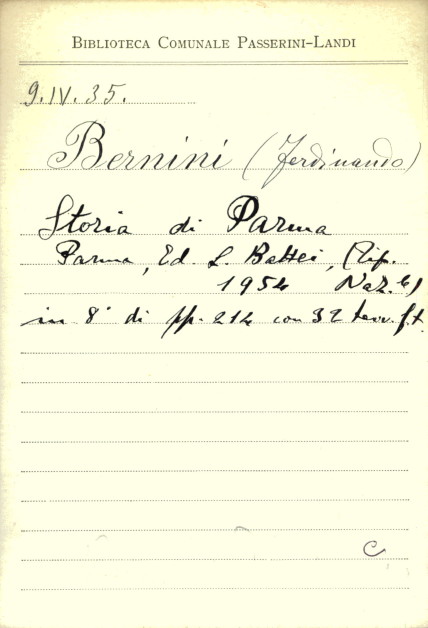 BIBLIOTECA COMUNALE PASSERINI-LANDI
9.IV.35.
Bernini (Ferdinando)
Storia di Parma
Parma, Ed. L. Battei, (Tip.
1954 Naz.le)
in 8° di pp. 214 con 32 tavv. f.t.
C